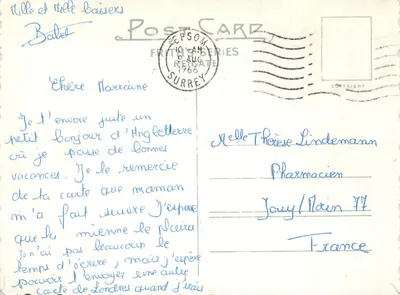 Mille et Mille baisers
POST CARD
FRITH'S SERIES
REIGATE
EPSOM
10-AM
9 AUG
1966
SURREY
COPYRIGHT
Chère Marraine
Je t'envoie juste un
petit bonjour d'Angleterre
où je passe de bonnes
vacances. Je te remercie
de ta carte que maman
m'a fait suivre J'espère
que la mienne te plaira
je n'ai pas beaucoup le
temps d'écrire, mais j'espère
pouvoir t'envoyer une autre
carte de Londres quand j'irais
Melle Thérèse Lindemann
Pharmacien
Jouy/Morin 77
France